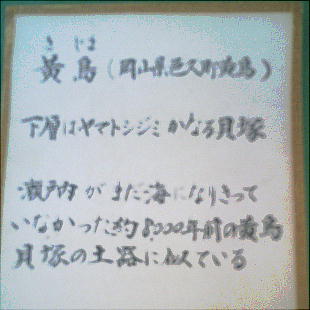 き じま
黄島(岡山県邑久町黄島)
下層はヤマトシジミからなる貝塚
瀬戸内がまだ海になりきって
いなかった約8000年前の黄島
貝塚の土器に似ている